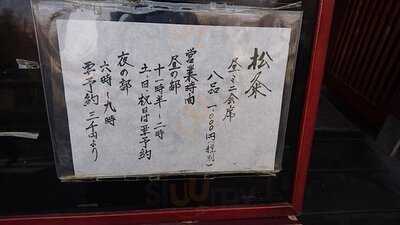 松粂
昼ミニ会席
八品 一、000円(税別)
営業時間
昼の部
十一時半〜二時
土、日、祝日は要予約
夜の部
六時〜九時
要予約 三千円より